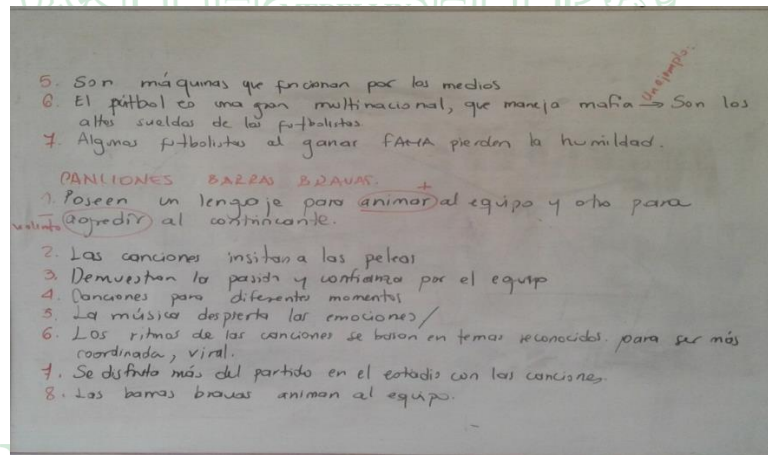 5. Son máquinas que funcionan por los medios
Un ejemplo:
6. El fútbol es una gran multinacional, que maneja mafia → Son los
altos sueldos de los futbolistas
7. Algunos futbolistas al ganar FAMA pierden la humildad.
CANCIONES BARRAS BRAVAS.
+
1. Poseen un lenguaje para animar al equipo y otro para
violento agredir al contrincante.
2. Las canciones insitan a las peleas
3. Demuestran la pasión y confianza por el equipo
4. Canciones para diferentes momentos
5. La música despierta las emociones/
6. Los ritmos de las canciones se basan en temas reconocidos. para ser más
coordinada, viral.
7. Se disfruta más del partido en el estadio con las canciones.
8. Las barras bravas animan al equipo.